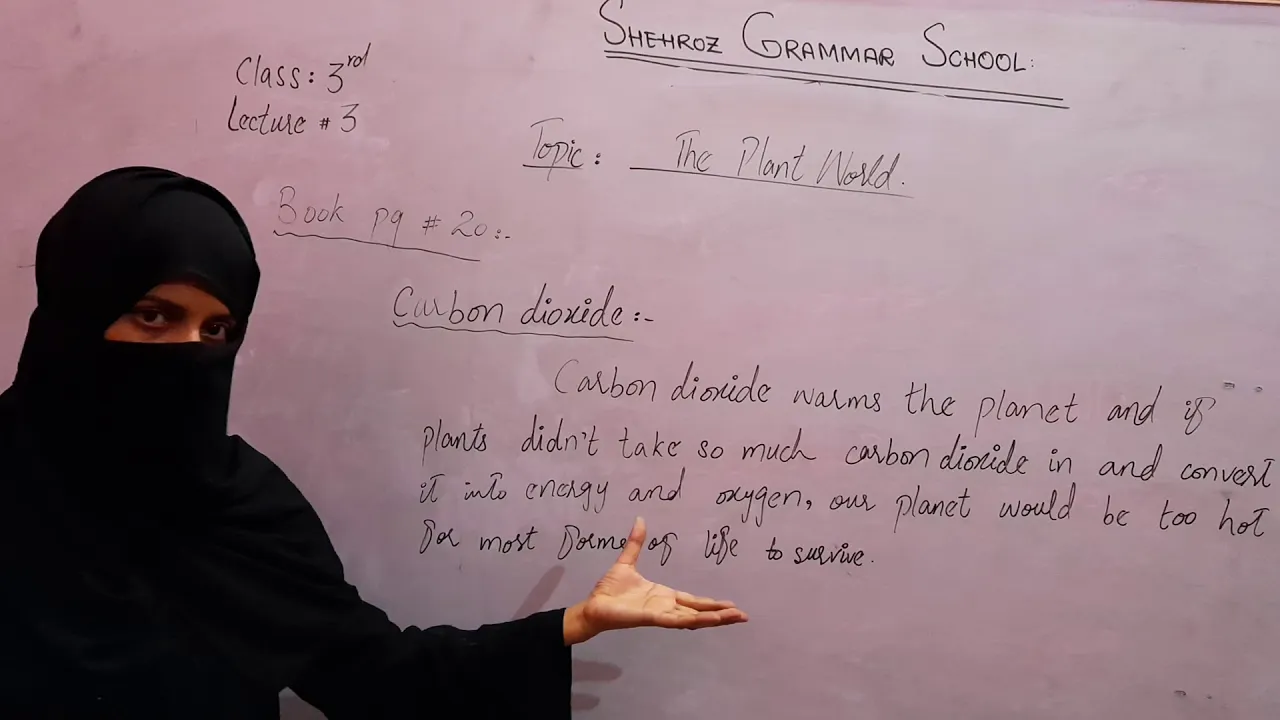 SHEHROZ GRAMMAR SCHOOL:
Class: 3rd
Lecture # 3
Topic: The Plant World.
Book pg # 20:-
Carbon dioxide:-
Carbon dioxide warms the planet and if
plants didn't take so much carbon dioxide in and convert
it into energy and oxygen, our planet would be too hot
for most forms of life to survive.